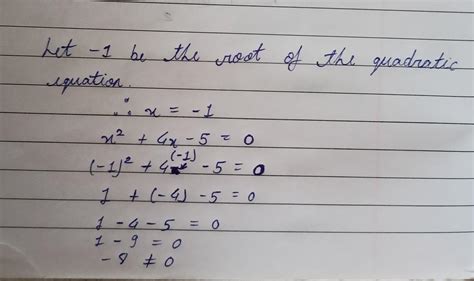 Let -1 be the root of the quadratic
equation.
∴ x = -1
x² + 4x - 5 = 0
(-1)² + 4(-1) - 5 = 0
1 + (-4) - 5 = 0
1 - 4 - 5 = 0
1 - 9 = 0
-8 ≠ 0